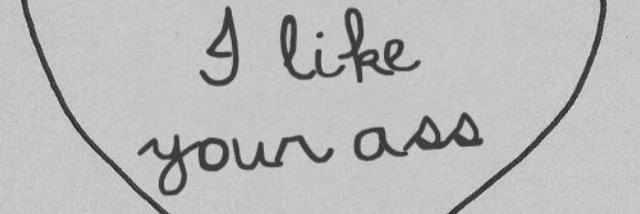 I like
your ass